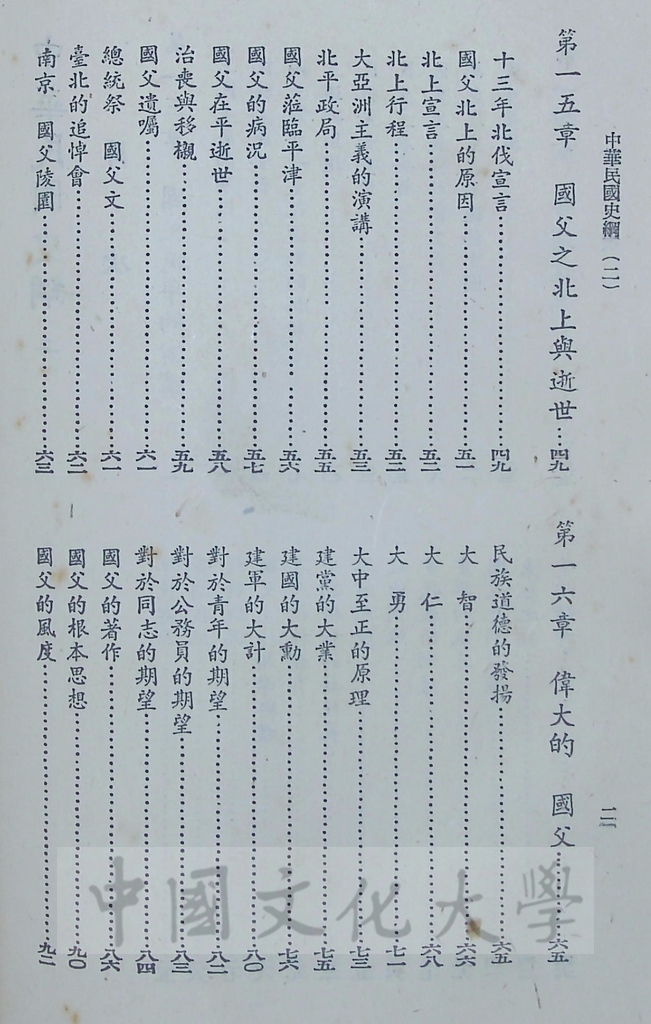 中華民國史綱（二）
第一五章　國父之北上與逝世…四九
十三年北伐宣言…四九
國父北上的原因…五一
北上宣言…五二
北上行程…五二
大亞洲主義的演講…五三
北平政局…五五
國父蒞臨平津…五六
國父的病況…五七
國父在平逝世…五八
治喪與移櫬…五九
國父遺囑…六一
總統祭　國父文…六一
臺北的追悼會…六二
南京　國父陵園…六三
第一六章　偉大的　國父…六五
民族道德的發揚…六五
大　智…六六
大　仁…六八
大　勇…七一
大中至正的原理…七三
建黨的大業…七五
建國的大勳…七六
建軍的大計…八〇
對於青年的期望…八二
對於公務員的期望…八三
對於同志的期望…八四
國父的著作…八六
國父的根本思想…九〇
國父的風度…九二
二
中國文化大學